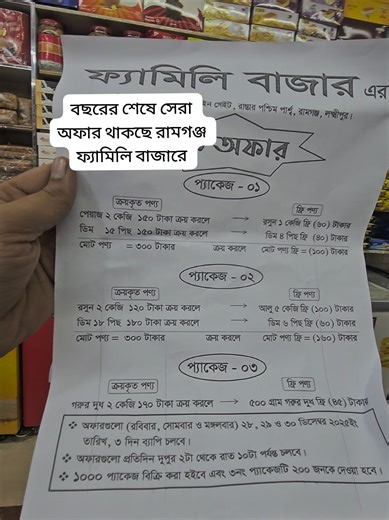 ফ্যামিলি বাজার এর
বছরের শেষে সেরা
অফার থাকছে রামগঞ্জ
ফ্যামিলি বাজারে
ইন গেইট, রাস্তার পশ্চিম পার্শ্ব, রামগঞ্জ, লক্ষ্মীপুর।
অফার
প্যাকেজ - ০১
ক্রয়কৃত পণ্য ফ্রি পণ্য
পেয়াজ ২ কেজি ১৫০ টাকা ক্রয় করলে → রসুন ১ কেজি ফ্রি (৬০) টাকার
ডিম ১৫ পিছ ১৫০ টাকা ক্রয় করলে → ডিম ৪ পিছ ফ্রি (৪০) টাকার
মোট পণ্য = ৩০০ টাকার ক্রয় করলে মোট পণ্য ফ্রি = (১০০) টাকার
প্যাকেজ - ০২
ক্রয়কৃত পণ্য ফ্রি পণ্য
রসুন ২ কেজি ১২০ টাকা ক্রয় করলে → আলু ৫ কেজি ফ্রি (১০০) টাকার
ডিম ১৮ পিছ ১৮০ টাকা ক্রয় করলে → ডিম ৬ পিছ ফ্রি (৬০) টাকার
মোট পণ্য = ৩০০ টাকার ক্রয় করলে মোট পণ্য ফ্রি = (১৬০) টাকার
প্যাকেজ - ০৩
ক্রয়কৃত পণ্য ফ্রি পণ্য
গরুর দুধ ২ কেজি ১৭০ টাকা ক্রয় করলে → ৫০০ গ্রাম গরুর দুধ ফ্রি (৪৫) টাকার
❖ অফারগুলো (রবিবার, সোমবার ও মঙ্গলবার) ২৮, ২৯ ও ৩০ ডিসেম্বর ২০২৫ইং
তারিখ, ৩ দিন ব্যাপি চলবে।
❖ অফারগুলো প্রতিদিন দুপুর ২টা থেকে রাত ১০টা পর্যন্ত চলবে।
❖ ১০০০ প্যাকেজ বিক্রি করা হইবে এবং ৩নং প্যাকেজটি ২০০ জনকে দেওয়া হবে।